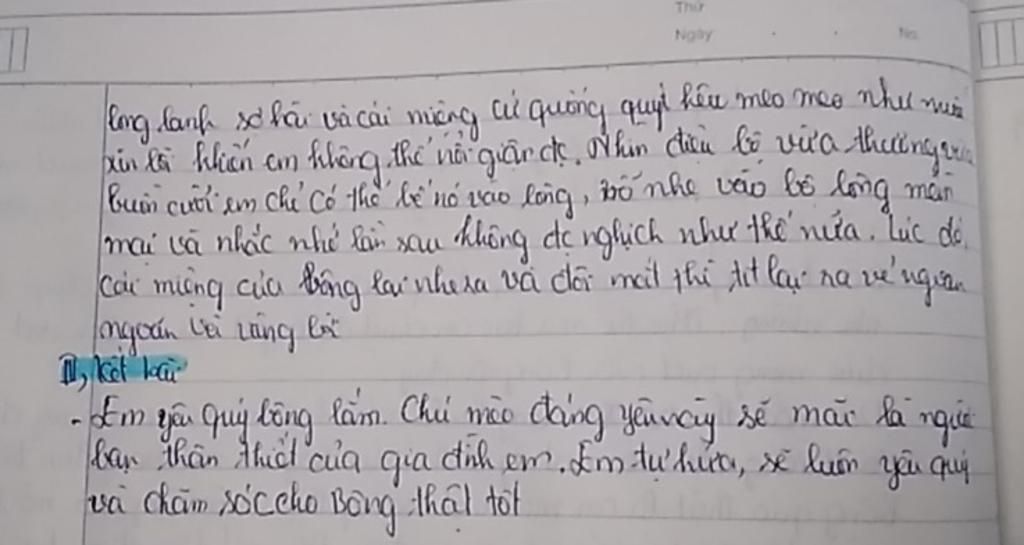 Thứ
Ngày
No.
long lanh sợ hãi và cái miệng cứ quống quýt kêu meo meo như muốn
xin lỗi khiến em không thể nổi giận đc. Nhìn điệu bộ vừa thương vừa
buồn cười em chỉ có thể bế nó vào lòng, vỗ nhẹ vào bộ lông mềm
mại và nhắc nhở lần sau không đc nghịch như thế nữa. Lúc đó,
cái miệng của Bông lại nhe ra và đôi mắt thì tít lại ra vẻ ngoan
ngoãn và vâng lời
III, kết bài
- Em yêu quý bông lắm. Chú mèo đáng yêu này sẽ mãi là người
bạn thân thiết của gia đình em. Em tự hứa, sẽ luôn yêu quý
và chăm sóc cho Bông thật tốt